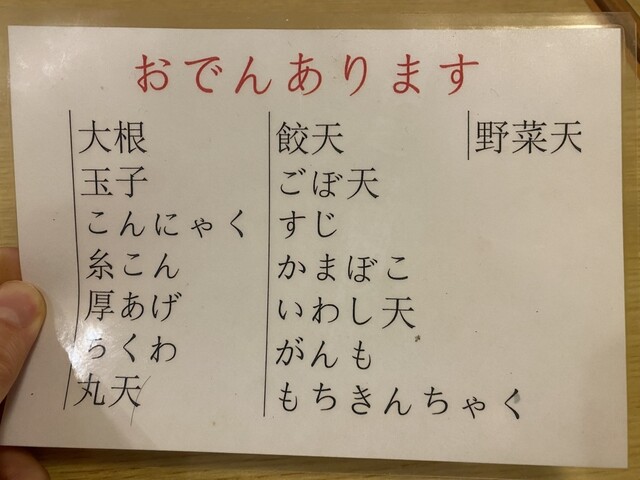 おでんあります
大根
玉子
こんにゃく
糸こん
厚あげ
ちくわ
丸天
餃天
ごぼ天
すじ
かまぼこ
いわし天
がんも
もちきんちゃく
野菜天